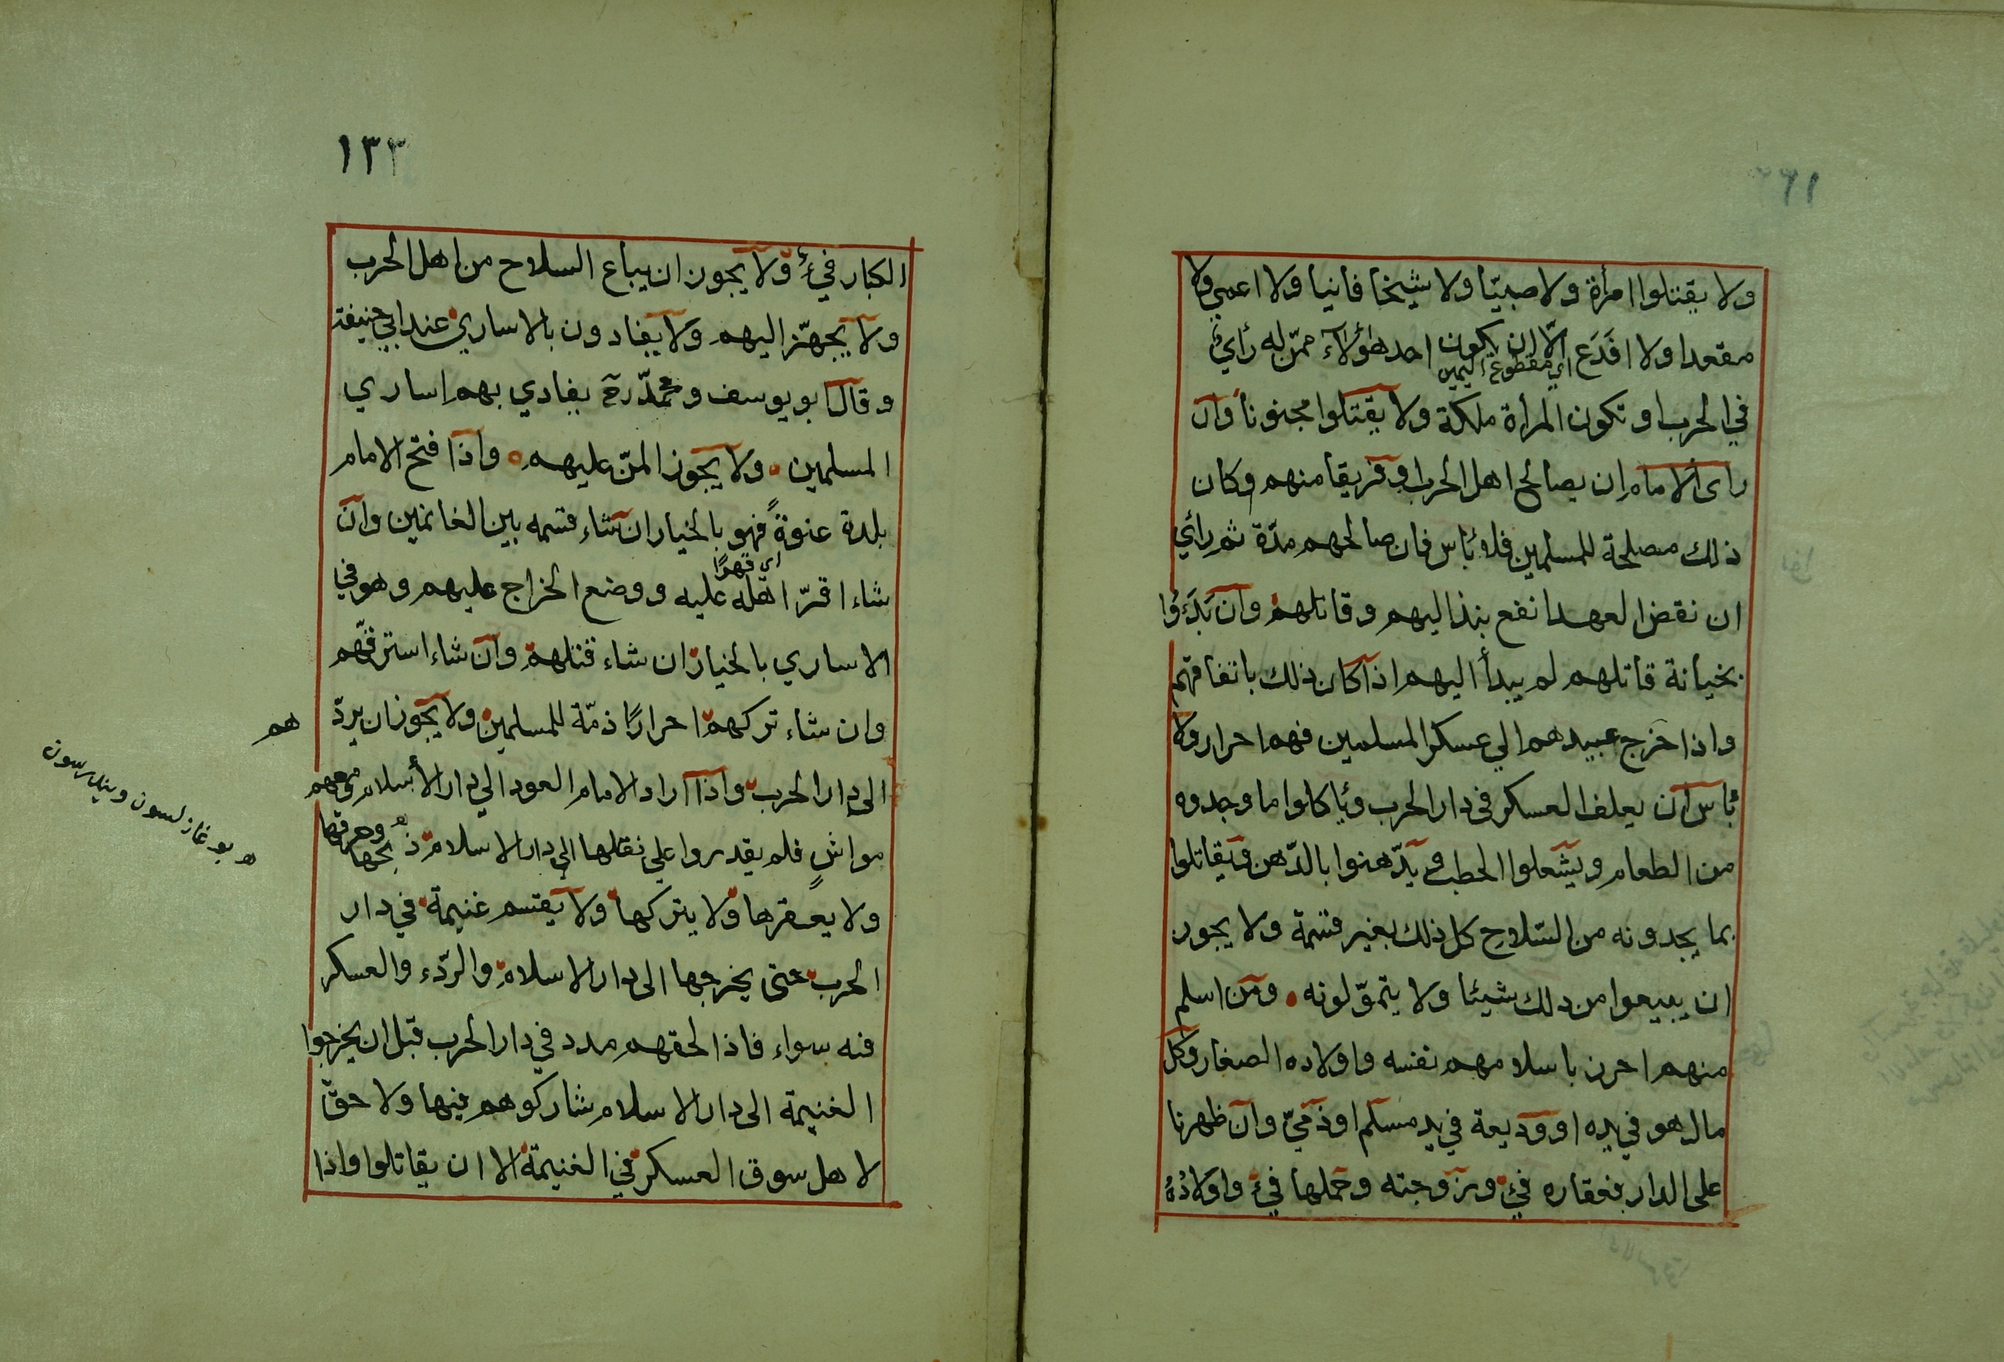 ولا يقتلوا امرأة ولا صبيّا ولا شيخا فانيا ولا اعمي ولا
مقعدا ولا اقدع الّا ان يكون احد هؤلآء ممّن له رأي
اي مقطوع اليمين
في الحرب او تكون المرأة ملكة ولا يقتلوا مجنونا وان
راى الامام ان يصالح اهل الحرب او فريقا منهم وكان
ذلك مصلحة للمسلمين فلا بأس فان صالحهم مدّة ثم رائي
ان نقض العهد انفع نبذ اليهم وقاتلهم وان بدَؤُا
بخيانة قاتلهم لم يبدأ اليهم اذا كان ذلك باتفاقهم
واذا خرج عبيدهم الي عسكر المسلمين فهم احرار ولا
بأس ان يعلف العسكر في دار الحرب ويأكلوا ما وجدوه
من الطعام ويشعلوا الحطب ويدّهنوا بالدّهن ويقاتلوا
بما يجدونه من السّلاح كل ذلك بغير قسمة ولا يجوز
ان يبيعوا من ذلك شيئا ولا يتموّلونه ومن اسلم
منهم احرز باسلامهم نفسه واولاده الصغار وكل
مال هو في يده او وديعة في يد مسلم او ذميّ وان ظهرنا
على الدار فعقاره فئ وزوجته وحملها فئ واولادهُ
١٣٣
الكبار فيء ولا يجوز ان يباع السلاح من اهل الحرب
ولا يجهّز اليهم ولا يفادون بالاساري عند ابي حنيفة
وقال ابو يوسف ومحمّد رح يفادي بهم اساري
المسلمين ولا يجوز المنّ عليهم واذا فتح الامام
بلدة عنوةً فهو بالخيار ان شاء قسمه بين الغانمين وان
اي قهرًا
شاء اقرّ اهله عليه ووضع الخراج عليهم وهو في
الاساري بالخيار ان شاء قتلهم وان شاء استرقّهم
وان شاء تركهم احرارًا ذمّة للمسلمين ولا يجوز ان يردّ
هم
الى دار الحرب واذا اراد الامام العود الي دار الأسلام ومعهم
مواشٍ فلم يقدروا علي نقلها الى دار الاسلام ذبحها وحرقها
ولا يعقرها ولا يتركها ولا يقتسم غنيمة في دار
الحرب حتى يخرجها الى دار الاسلام والردّء والعسكر
فنه سواء فاذا لحقهم مدد في دار الحرب قبل ان يخرجوا
الغنيمة الى دار الاسلام شاركوهم فيها ولا حقّ
لاهل سوق العسكر في الغنيمة الا ان يقاتلوا واذا